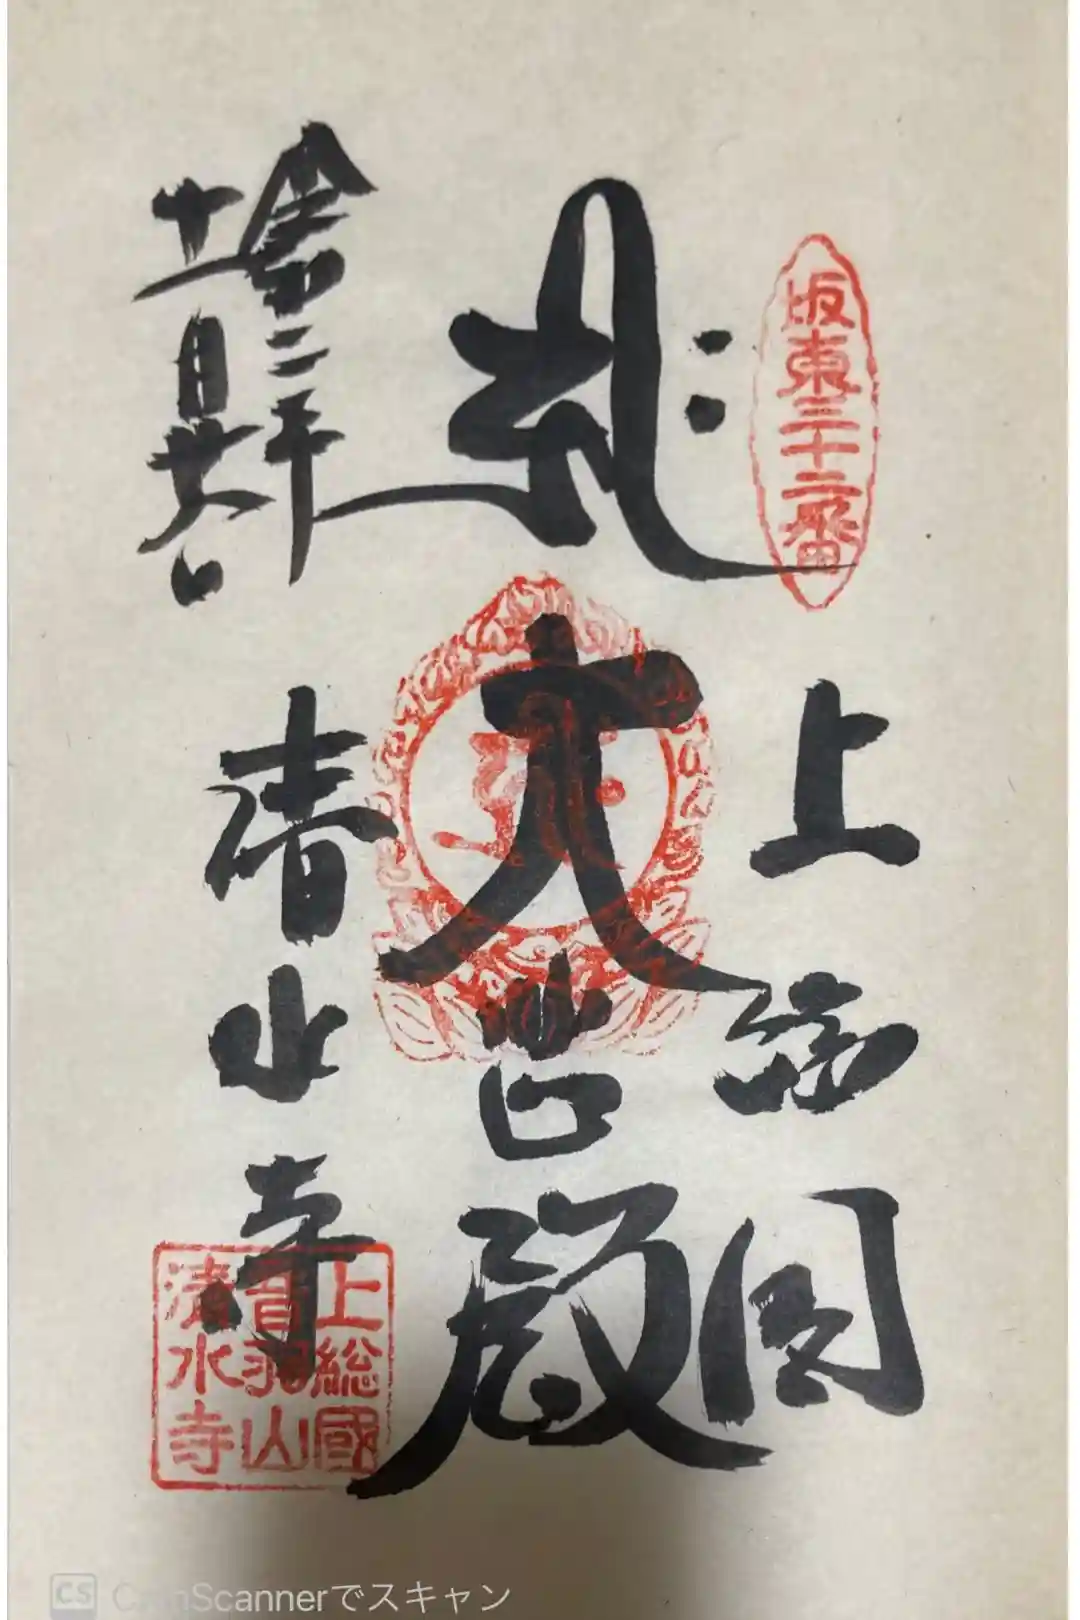 坂東三十二番
上総国
大悲殿
清水寺
令和二年
十一月廿六日
上総國
音羽山
清水寺
CS CamScannerでスキャン